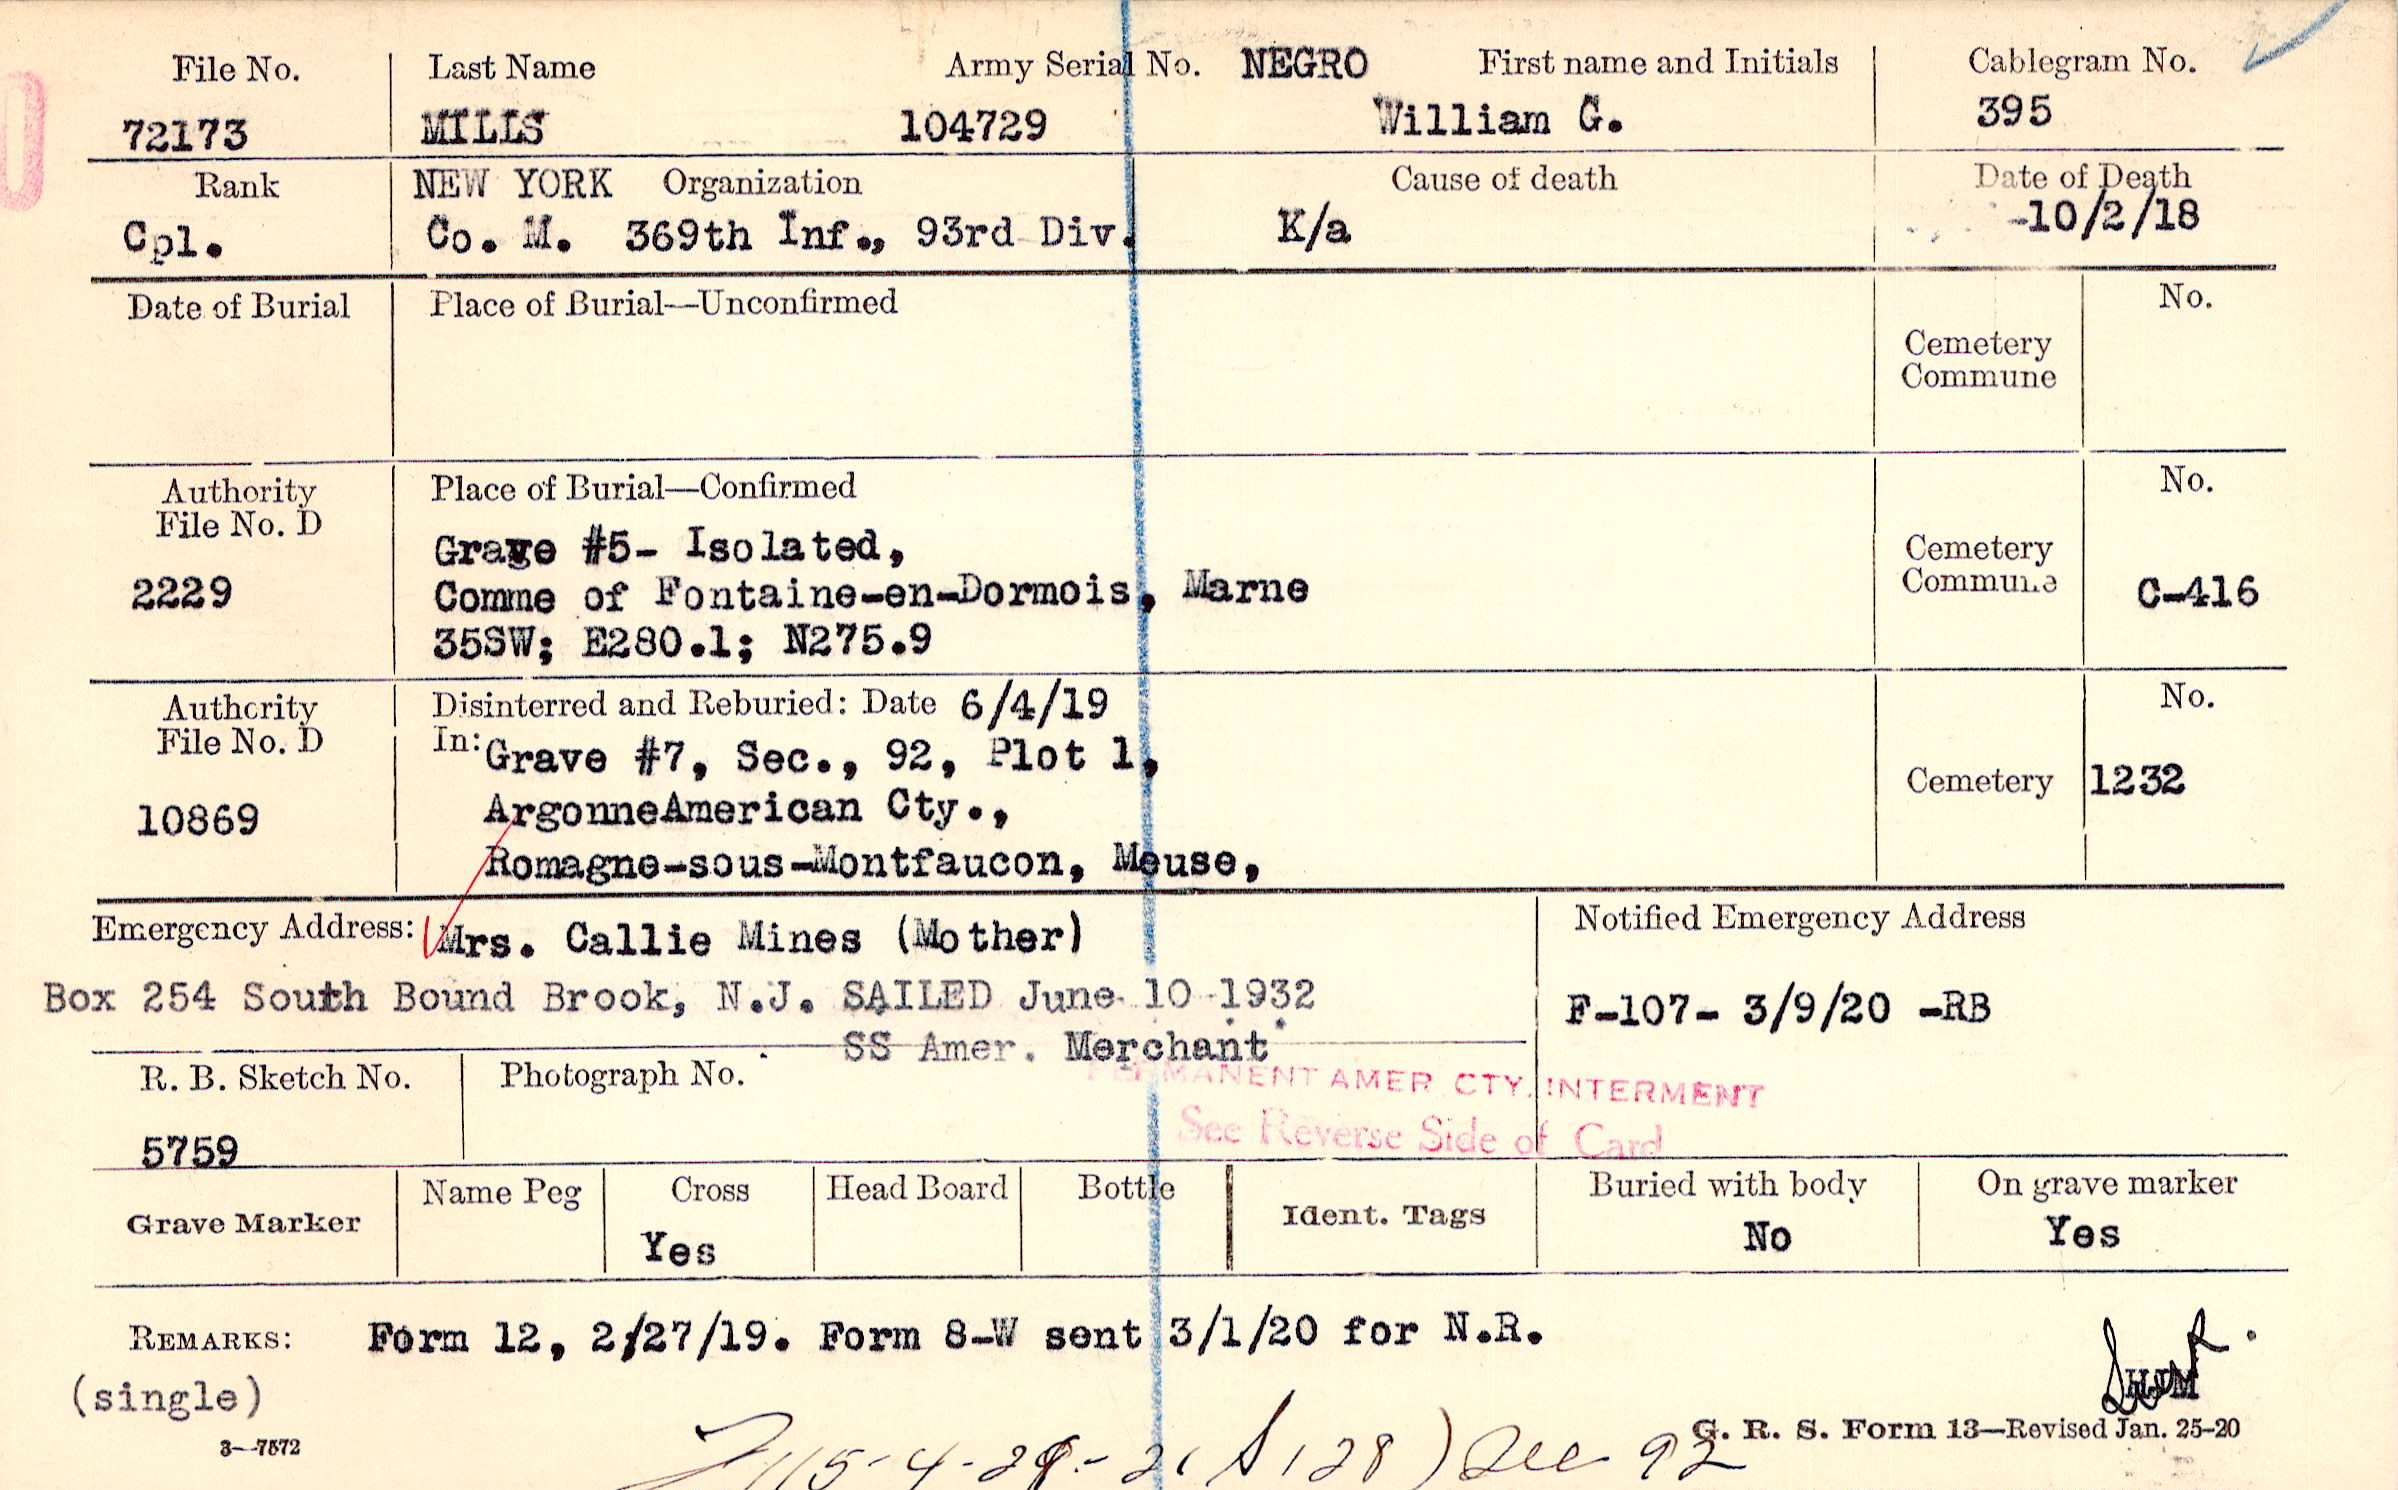 File No. Last Name Army Serial No. NEGRO First name and Initials Cablegram No.
72173 MILLS 104729 William G. 395
Rank NEW YORK Organization Cause of death Date of Death
Cpl. Co. M. 369th Inf., 93rd Div. K/a -10/2/18
Date of Burial Place of Burial—Unconfirmed No.
Cemetery
Commune
Authority Place of Burial—Confirmed No.
File No. D
Grave #5- Isolated, Cemetery
2229 Comme of Fontaine-en-Dormois, Marne Commune C-416
35SW; E280.1; N275.9
Authority Disinterred and Reburied: Date 6/4/19 No.
File No. D In: Grave #7, Sec., 92, Plot 1,
Cemetery 1232
10869 ArgonneAmerican Cty.,
Romagne-sous-Montfaucon, Meuse,
Emergency Address: Mrs. Callie Mines (Mother) Notified Emergency Address
Box 254 South Bound Brook, N.J. SAILED June 10 1932 F-107- 3/9/20 -RB
SS Amer. Merchant
R. B. Sketch No. Photograph No.
PERMANENT AMER CTY. INTERMENT
See Reverse Side of Card
5759
Grave Marker Name Peg Cross Head Board Bottle Ident. Tags Buried with body On grave marker
Yes No Yes
REMARKS: Form 12, 2/27/19. Form 8-W sent 3/1/20 for N.R.
(single) HJM
3—7572 G. R. S. Form 13—Revised Jan. 25-20
128) 92